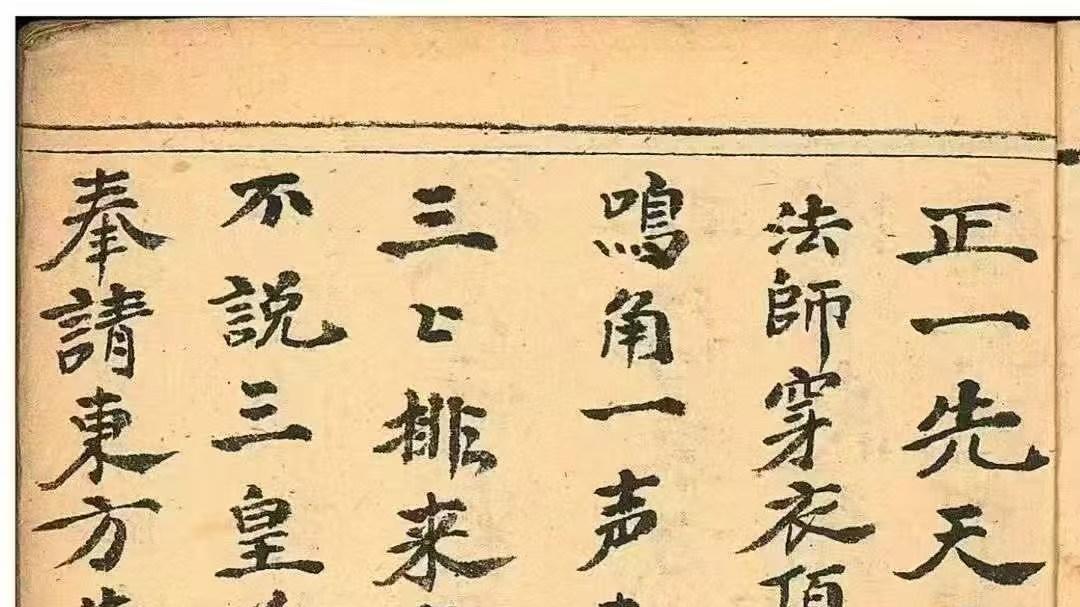 正一先天
法師穿衣頂
鳴角一声
三〻排来
不説三皇
奉請東方